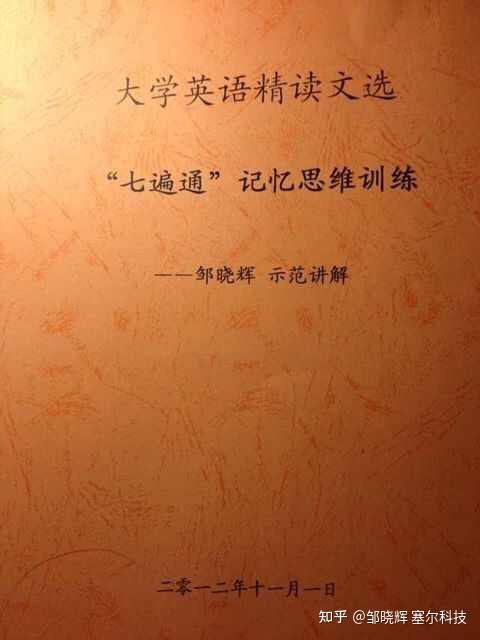 大学英语精读文选
“七遍通”记忆思维训练
——邹晓辉 示范讲解
二零一二年十一月一日
知乎 @邹晓辉 塞尔科技